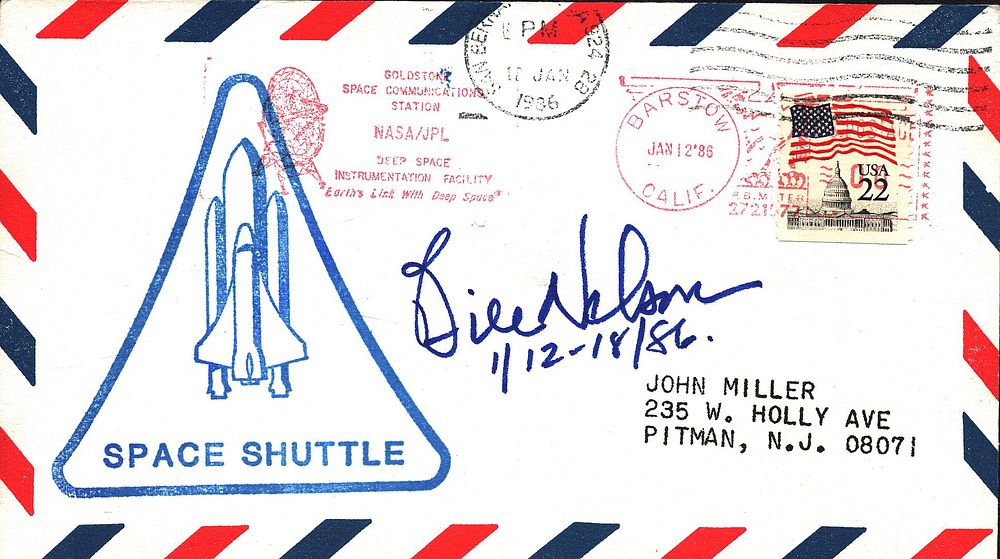 GOLDSTONE
SPACE COMMUNICATIONS
STATION
NASA/JPL
DEEP SPACE
INSTRUMENTATION FACILITY
"Earth's Link With Deep Space"
PM
12 JAN
1986
BARSTOW
JAN 12 '86
CALIF.
USA
22
Bill Nelson
1/12-18/86.
JOHN MILLER
235 W. HOLLY AVE
PITMAN, N.J. 08071
SPACE SHUTTLE